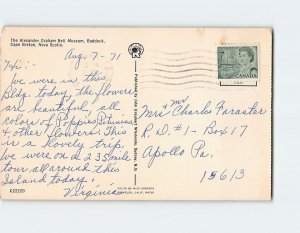 The Alexander Graham Bell Museum, Baddeck,
Cape Breton, Nova Scotia.
Aug 7-71
Hi:
We were in this
Bldg. today, the flowers
are beautiful, all
colors of Poppies, Petunias
& other flowers. This
is a lovely trip.
We were on a 235 mile
tour all around this
Island today.
Virginia
C22220
CANADA
Mrs & Mr Charles Foraster
R.D. #1-Box 17
Apollo Pa.
15613